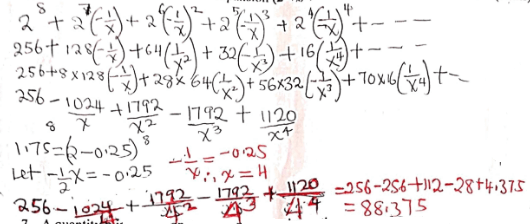 2⁸ + 2⁷(-1/x) + 2⁶(-1/x)² + 2⁵(-1/x)³ + 2⁴(-1/x)⁴ + ---
256 + 128(-1/x) + 64(1/x²) + 32(-1/x³) + 16(1/x⁴) + ---
256 + 8 × 128(-1/x) + 28 × 64(1/x²) + 56×32(-1/x³) + 70×16(1/x⁴) + --
256 - 1024/x + 1792/x² - 1792/x³ + 1120/x⁴
8
1.75 = (2 - 0.25)⁸
Let -1/2 x = -0.25 -1/x = -0.25 ∴ x = 4
256 - 1024/4 + 1792/4² - 1792/4³ + 1120/4⁴ = 256 - 256 + 112 - 28 + 4.375
= 88.375